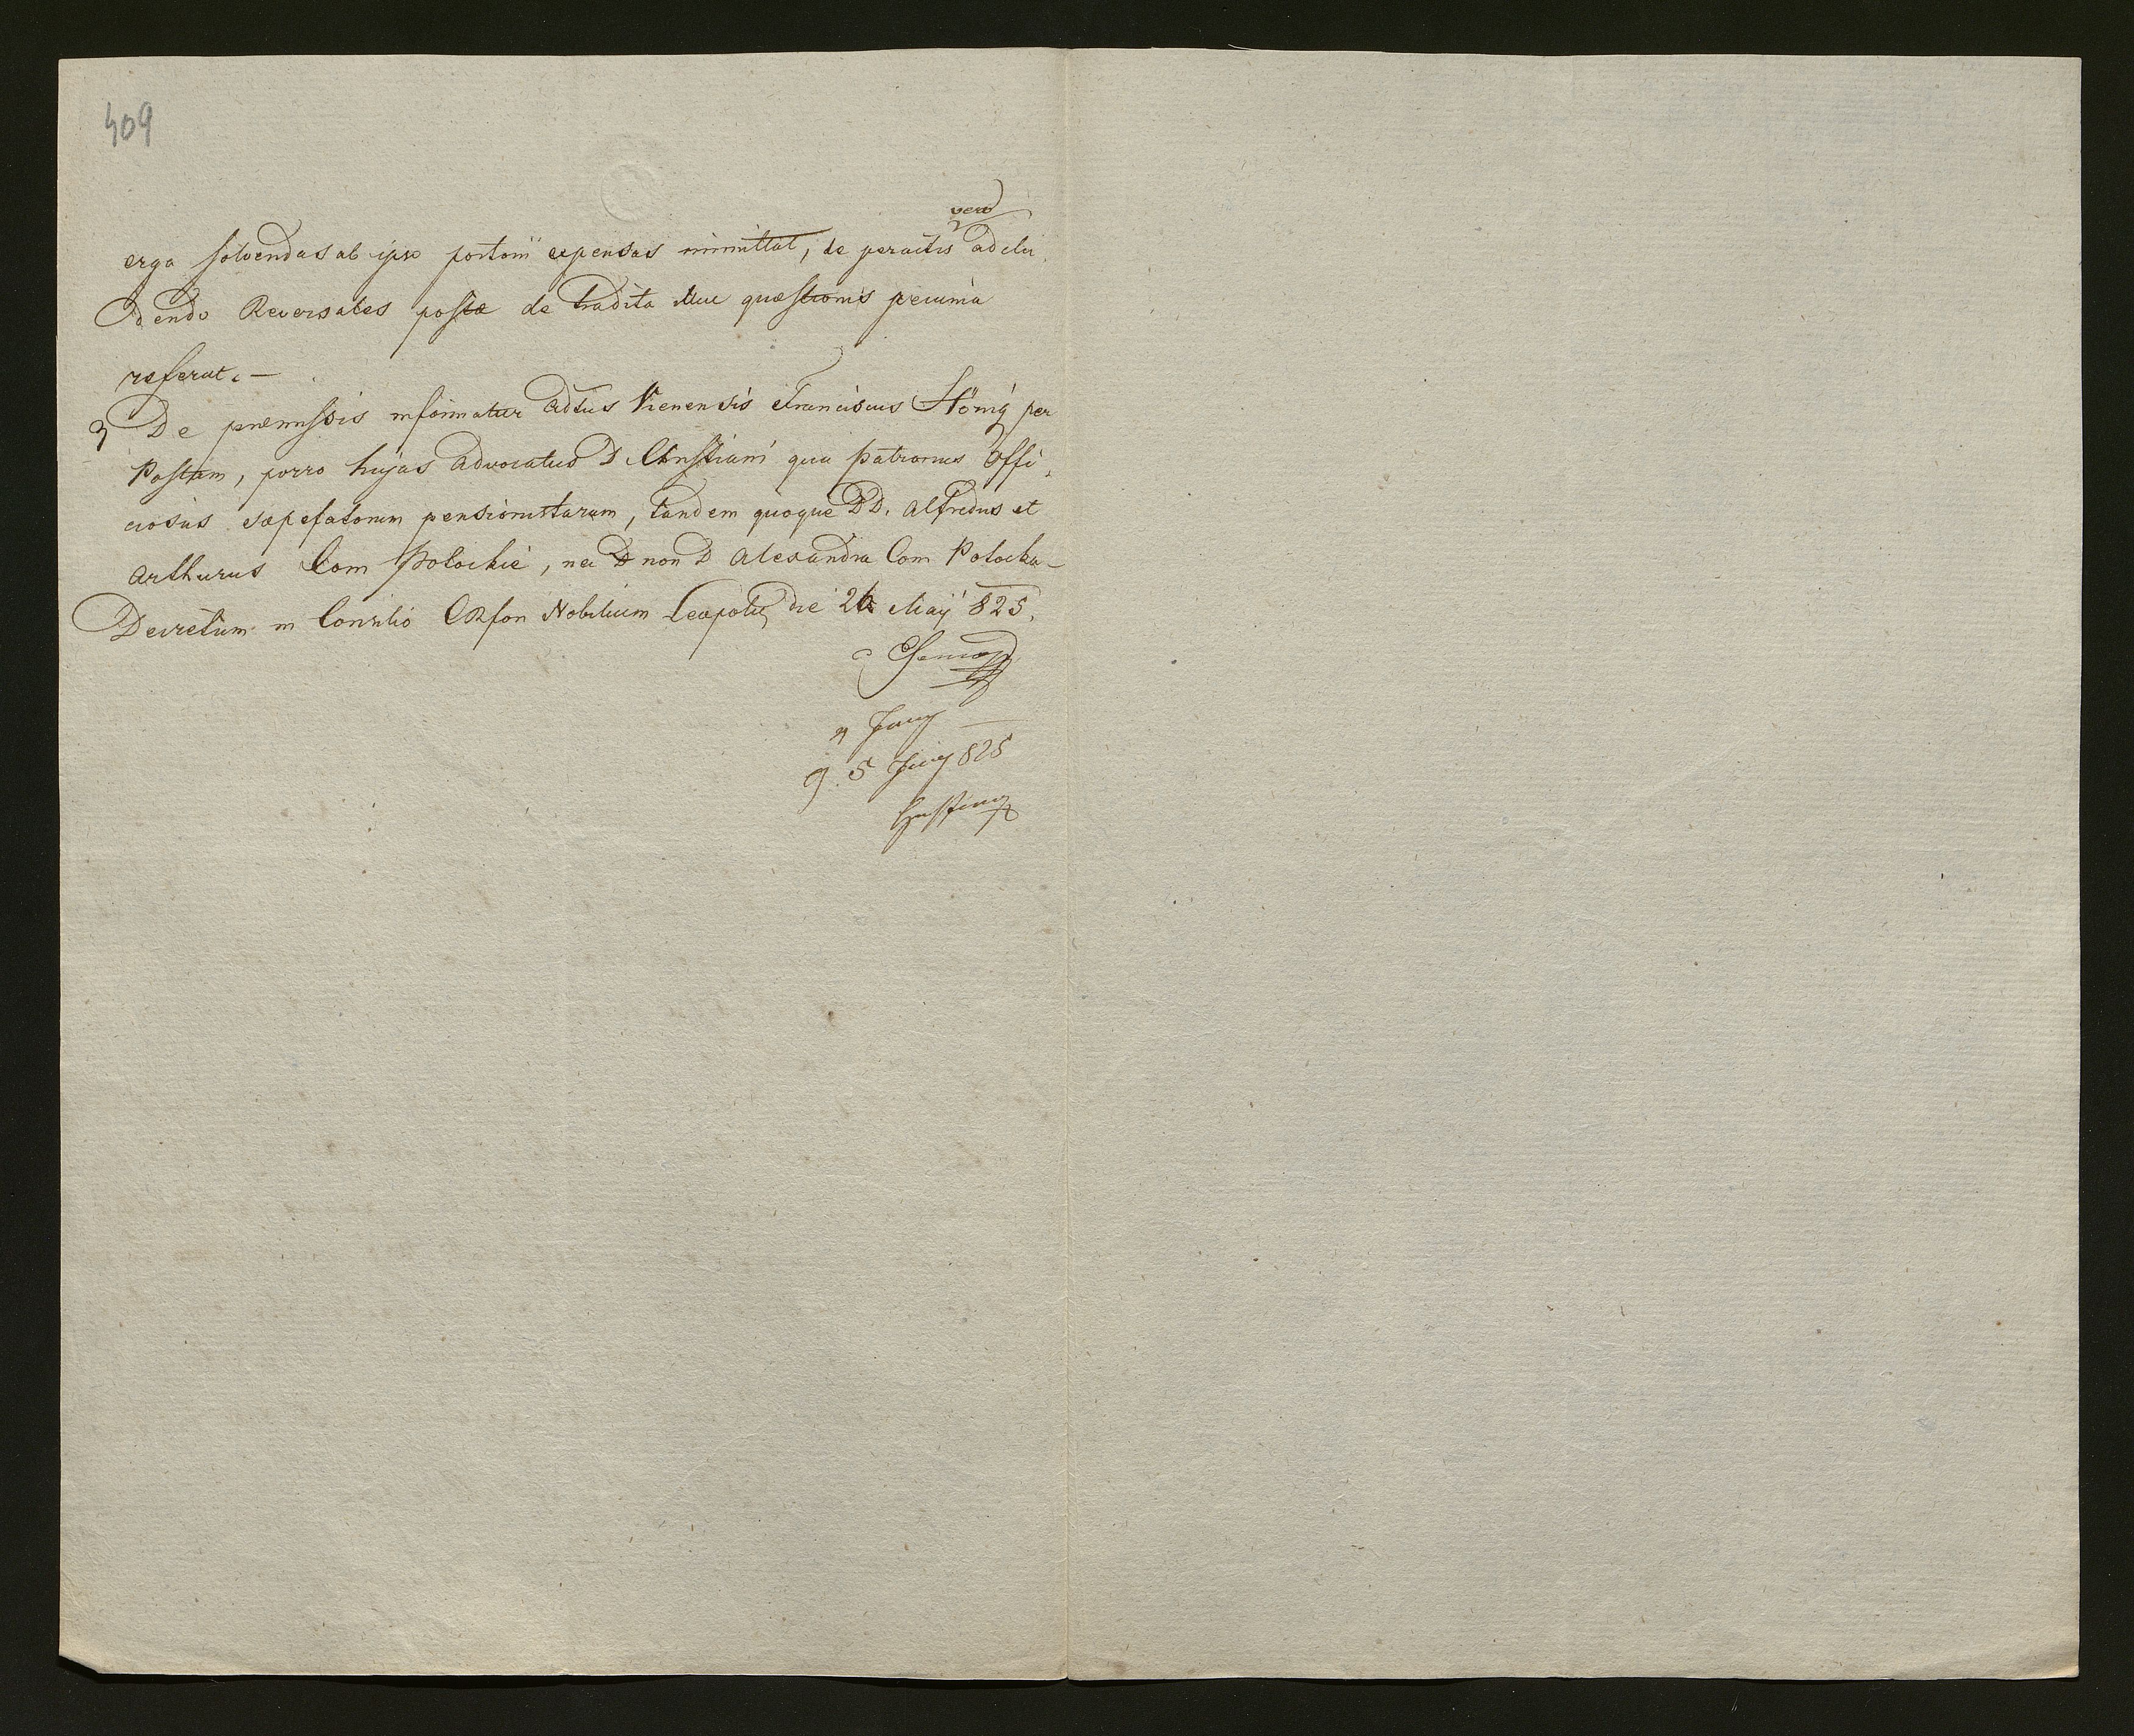 409
vero
erga solvendas ab ipso portorii expensas immittat, de peractis adclu,
dendo Reversales postæ de tradita illuc quæstionis pecunia
referat. —
3 De præmissis informatur Adtus Vienensis Franciscus Hönig per
Postam, porro hujas Advocatus D Christiani qua patronus offi,
ciosus sæpefatorum pensionistarum, tandem quoque DD. Alfredus et
Arthurus Com Potockie, nec non D Alexandra Com Potocka —
Decretum in Consilio CR fori Nobilium Leopoli die 26 Maij 825.
5 Juny 825